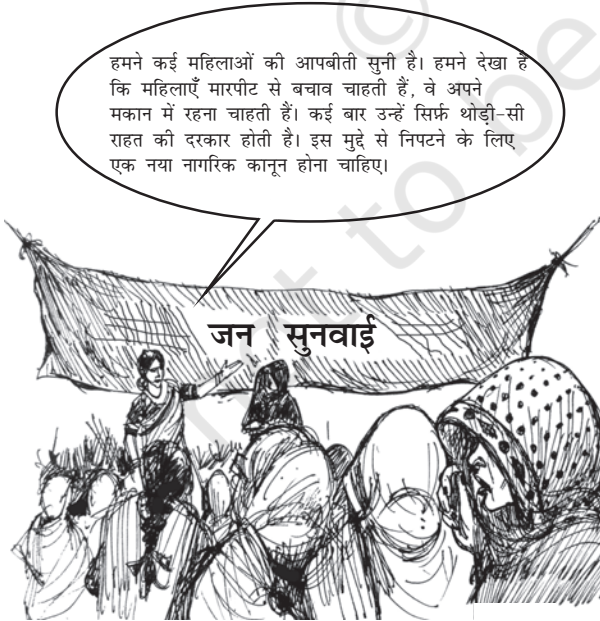 हमने कई महिलाओं की आपबीती सुनी है। हमने देखा है
कि महिलाएँ मारपीट से बचाव चाहती हैं, वे अपने
मकान में रहना चाहती हैं। कई बार उन्हें सिर्फ़ थोड़ी-सी
राहत की दरकार होती है। इस मुद्दे से निपटने के लिए
एक नया नागरिक कानून होना चाहिए।
जन सुनवाई
not to be